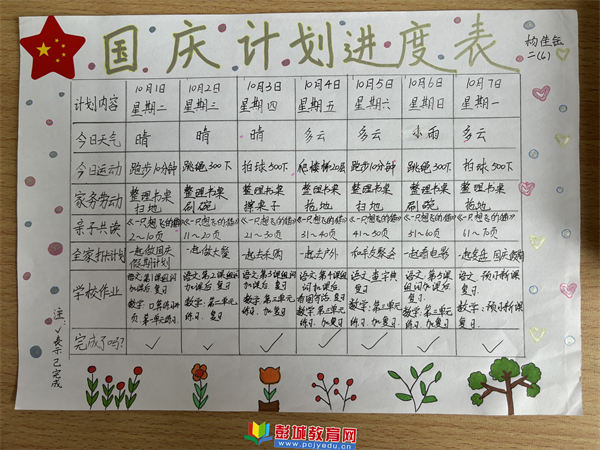 国庆计划进度表
二(6)
计划内容 10月1日 星期二 10月2日 星期三 10月3日 星期四 10月4日 星期五 10月5日 星期六 10月6日 星期日 10月7日 星期一
今日天气 晴 晴 晴 多云 多云 小雨 多云
今日运动 跑步10分钟 跳绳300下 拍球500下 爬楼梯20层 跑步10分钟 跳绳300下 拍球500下
家务劳动 整理书桌 扫地 整理书桌 刷碗 整理书桌 擦桌子 整理书桌 拖地 整理书桌 扫地 整理书桌 刷碗 整理书桌 拖地
亲子共读 《一只想飞的猫》 2~10页 《一只想飞的猫》 11~20页 《一只想飞的猫》 21~30页 《一只想飞的猫》 31~40页 《一只想飞的猫》 41~50页 《一只想飞的猫》 51~60页 《一只想飞的猫》 61~70页
全家共计划 一起做国庆假期计划 一起做大餐 一起去采购 一起去户外 和朋友聚会 一起看电影
学校作业 语文:第1课组词加课后 复习 数学:口算练习 语文:第2课组词加课后 复习 数学:第二单元练习、复习 语文:第3课组词加课后 复习 数学:第三单元练习、加复习 语文:第4课组词加课后 数学:第三单元练习、加复习 语文:查字典 复习 数学:第三单元练习、加复习 语文:第5课组词加课后 复习 数学:第三单元练习、加复习 语文:预习新课 复习 数学:预习新课 复习
完成了吗? ✓ ✓ ✓ ✓ ✓ ✓ ✓
注:✓表示已完成
彭城教育网
www.pcjyedu.cn